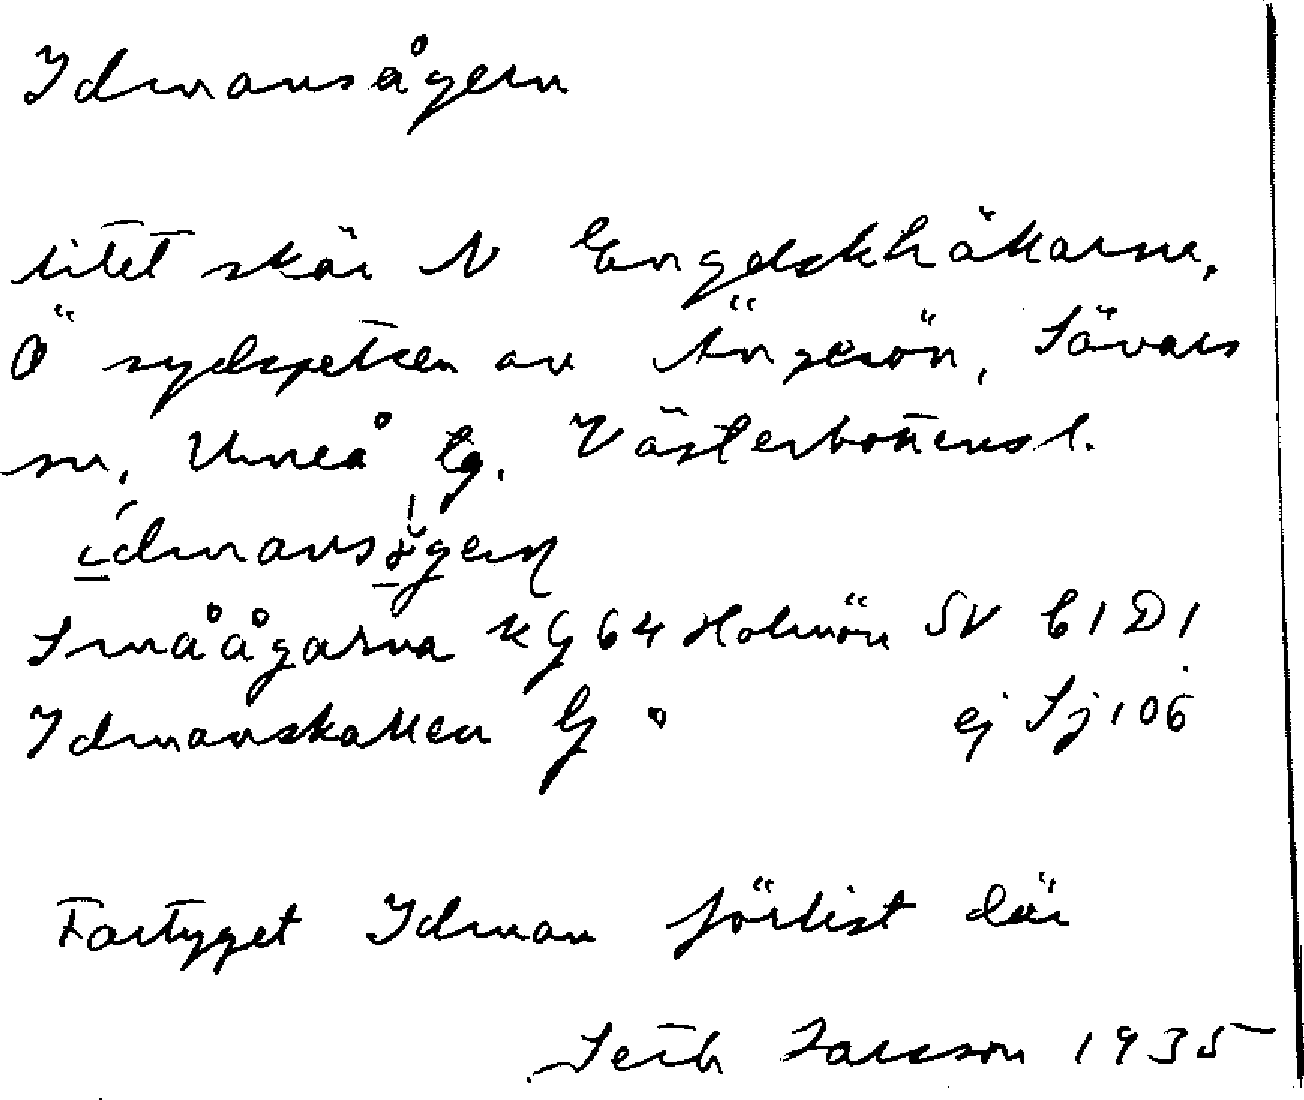 Idmansågern
litet skär N Engelskhällarne,
Ö sydspetsen av Ängerön, Sävars
sn, Umeå lg. Västerbottensl.
Småågarna KG 64 Holmön SV C1D1
Idmanskallen G ej Sj 106
Fartyget Idman förlist där
Seth Larsson 1935